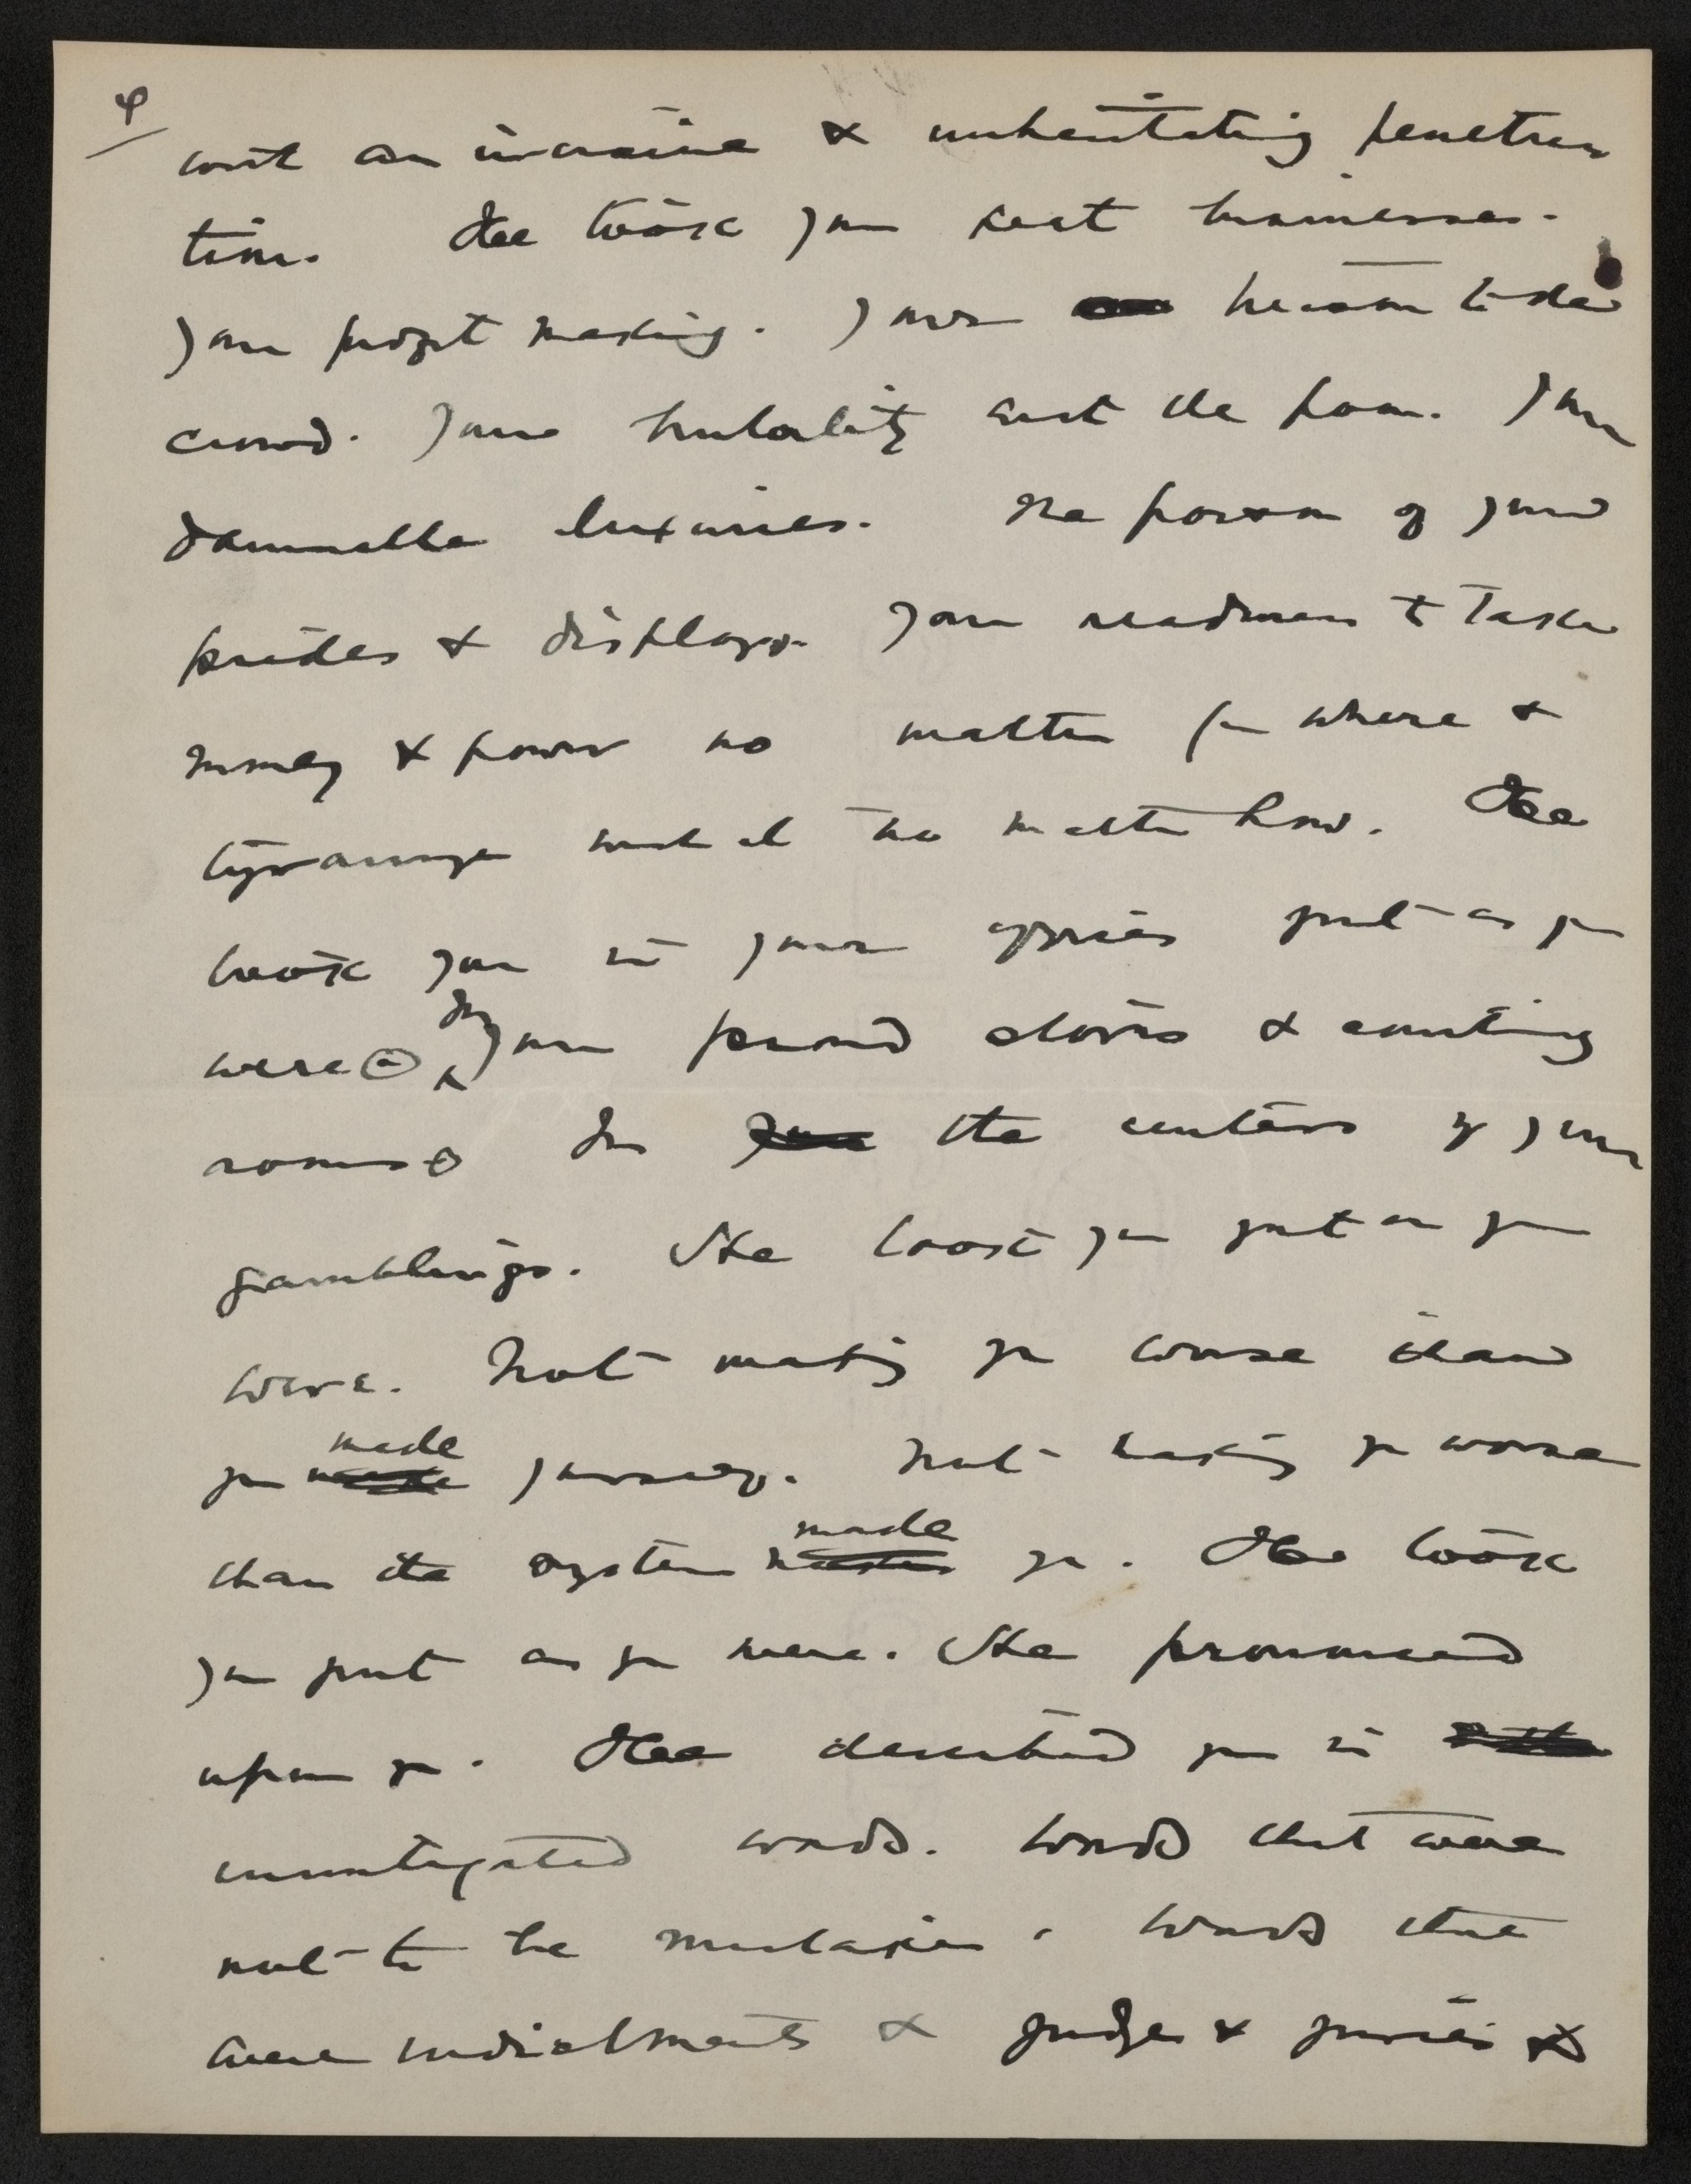 4
with an incisive & unhesitating penetra
tion. She took your businesses.
Your profit making. Your treason to the
crowd. Your brutality with the poor. Your
damnable luxuries. The poison of your
prides & displays. Your readiness to take
money & power no matter from where &
tyrannize with it no matter how. She
took you in your offices just as you
were. In your proud stores & counting
rooms. In the centers of your
gamblings. She took you just as you
were. Not making you worse than
you made yourselves. Not making you worse
than the system made you. She took
you just as you were. She pronounced
upon you. She described you in
unmitigated words. Words that were
not to be mistaken. Words that
were indictments & judges & juries &